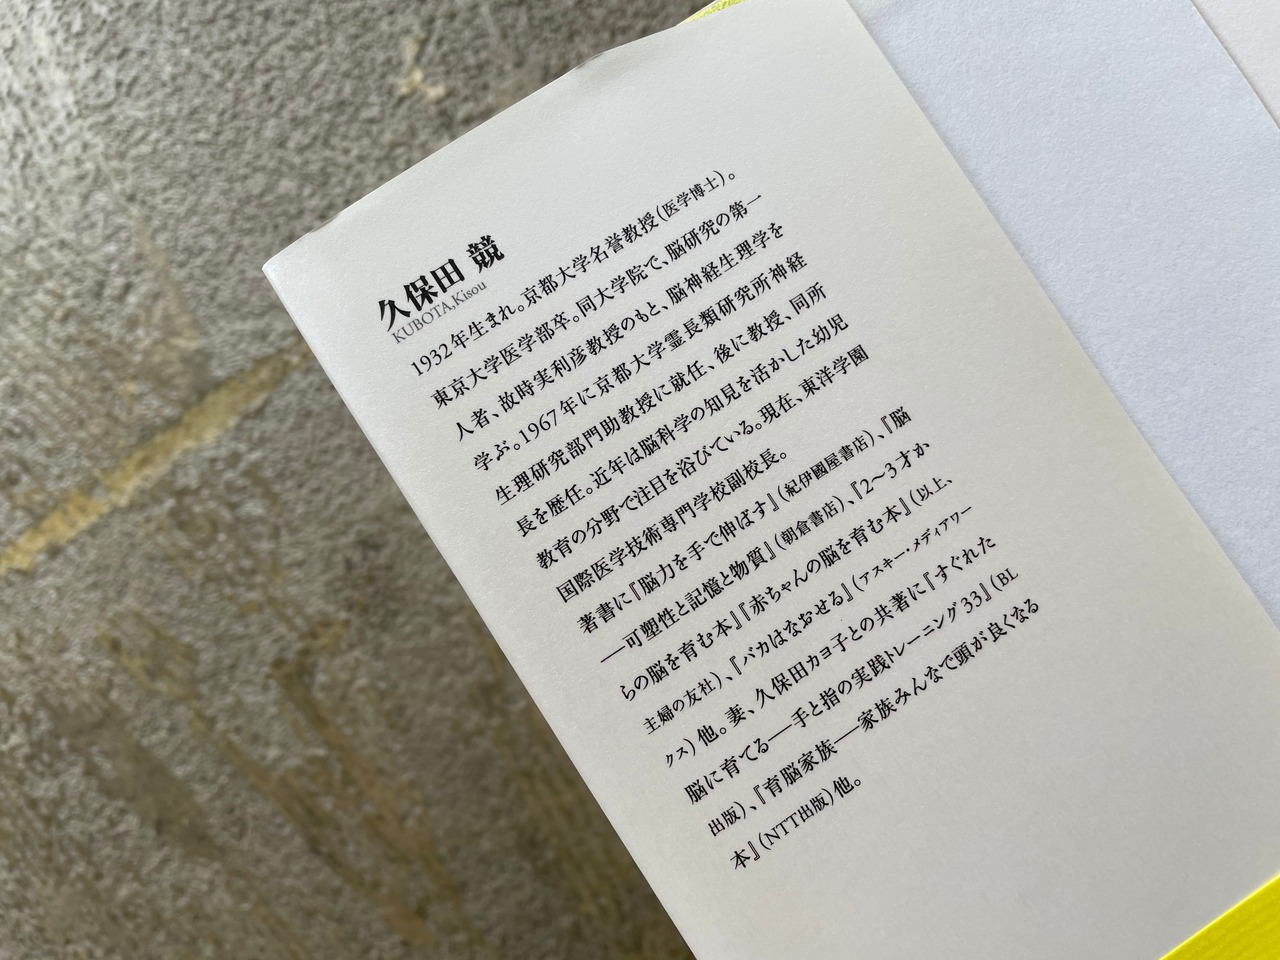 久保田 競
KUBOTA,Kisou
1932年生まれ。京都大学名誉教授(医学博士)。
東京大学医学部卒。同大学院で、脳研究の第一
人者、故時実利彦教授のもと、脳神経生理学を
学ぶ。1967年に京都大学霊長類研究所神経
生理研究部門助教授に就任、後に教授、同所
長を歴任。近年は脳科学の知見を活かした幼児
教育の分野で注目を浴びている。現在、東洋学園
国際医学技術専門学校副校長。
著書に『脳力を手で伸ばす』(紀伊國屋書店)、『脳
──可塑性と記憶と物質』(朝倉書店)、『2〜3才か
らの脳を育む本』『赤ちゃんの脳を育む本』(以上、
主婦の友社)、『バカはなおせる』(アスキー・メディアワー
クス)他。妻、久保田カヨ子との共著に『すぐれた
脳に育てる──手と指の実践トレーニング33』(BL
出版)、『育脳家族──家族みんなで頭が良くなる
本』(NTT出版)他。